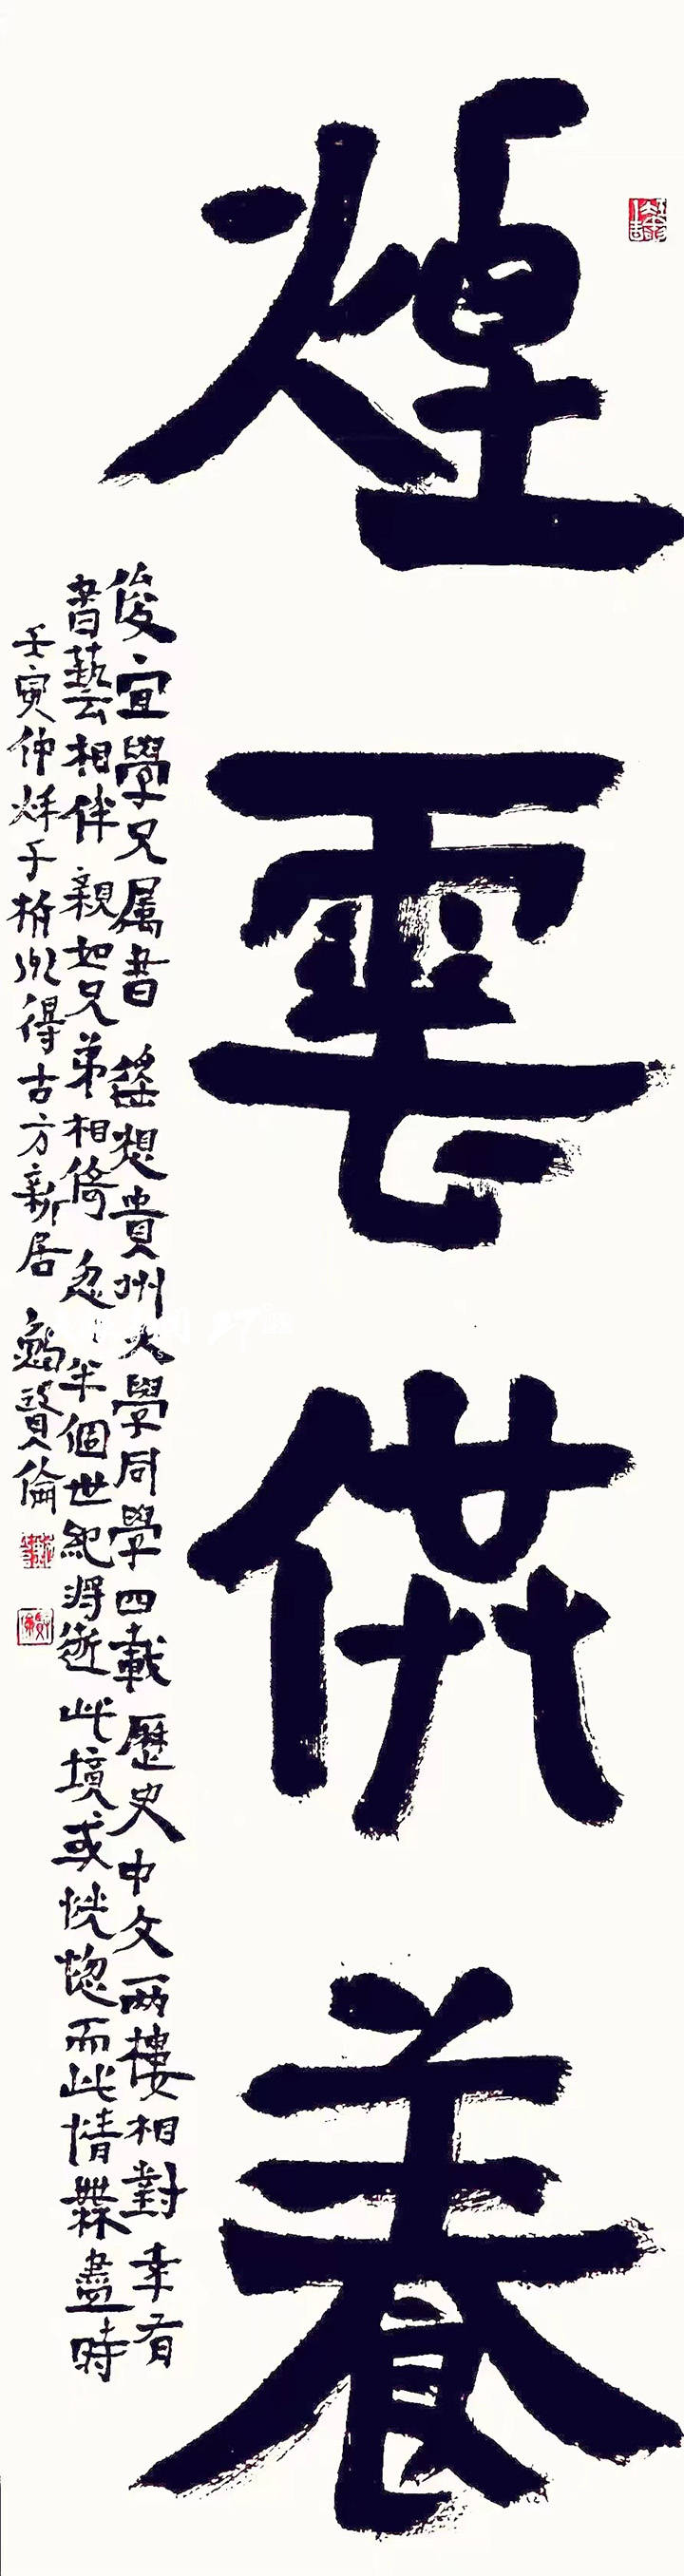 煙雲供養
俊宜學兄属書 遥想貴州大學同學四載歷史中文两樓相對幸有
書藝相伴親如兄弟相倚忽半個世紀将逝此境或恍惚而此情無盡時
壬寅仲秋于杭州得古方新居 鲍賢倫